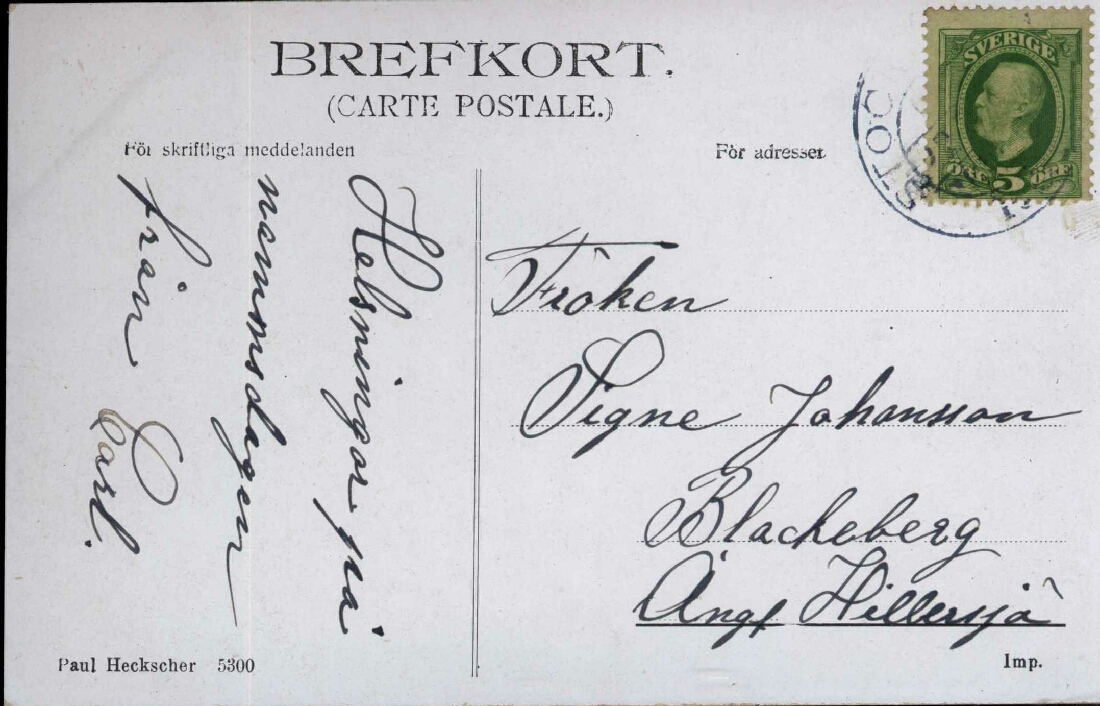 BREFKORT.
(CARTE POSTALE.)
För skriftliga meddelanden
För adresset.
SVERIGE
ÖRE 5 ÖRE
STOC
Helsningar på
namnsdagen
från Carl.
Fröken
Signe Johansson
Blackeberg
Ångf Hillersjö
Paul Heckscher 5300
Imp.